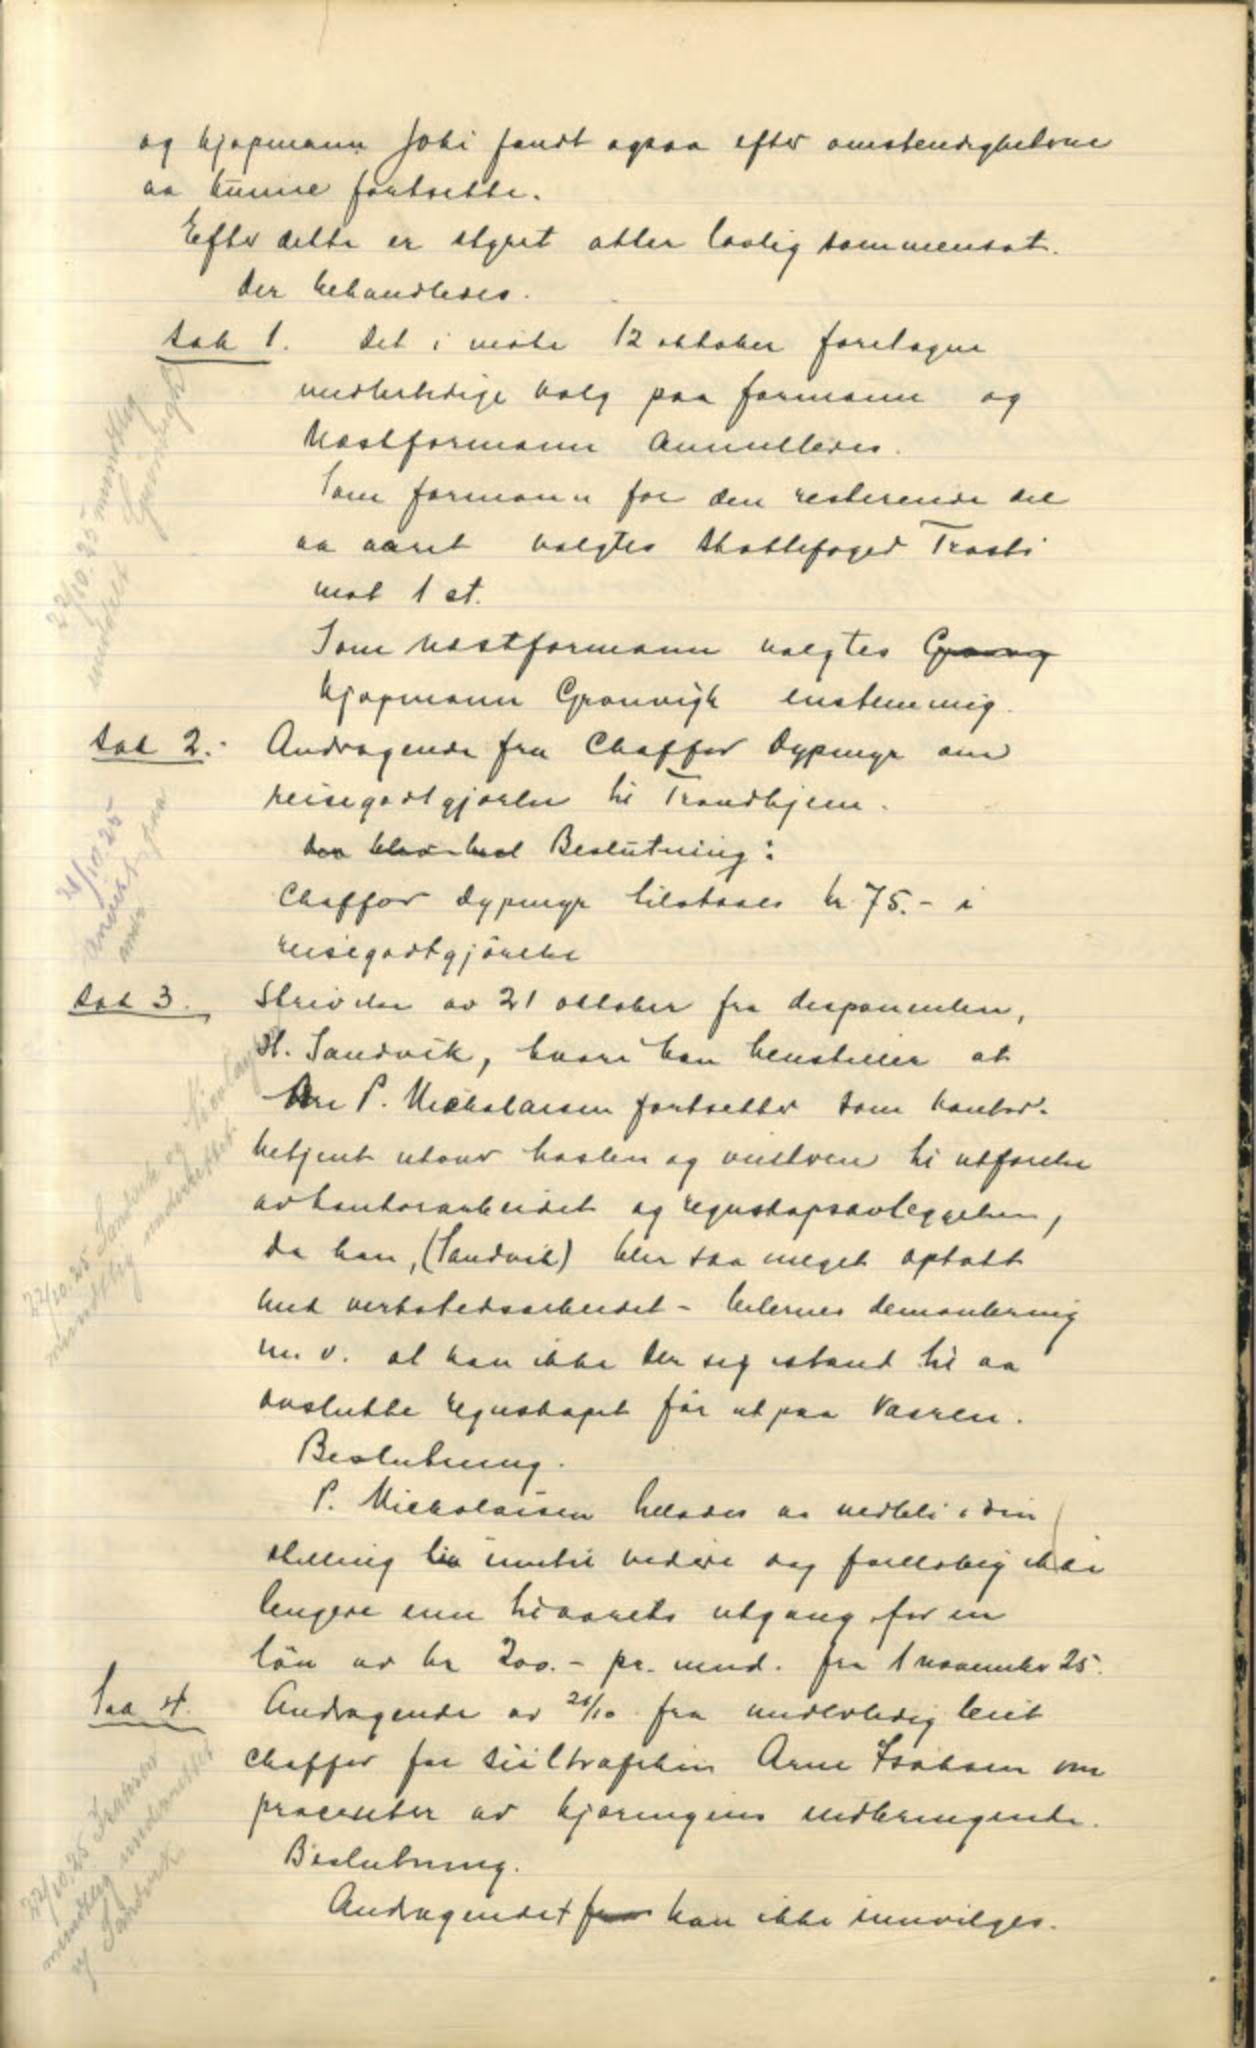 og kjøpmann Joki fandt ogsaa efter omstendighetene
aa kunne fortsette.
Efter dette er styret atter lovlig sammensat.
Der behandledes.
Sak 1. Det i møte 12 oktober foretagne
midlertidige valg paa formann og
næstformann annulledes.
Som formann for den resterende del
av aaret valgtes skattefoged Trasti
mot 1 st.
Som næstformann valgtes
kjøpmann Grønvigh enstemmig.
Sak 2. Andragende fra Chaffør Dypmyr om
reisegodtgjørelse til Trondhjem.
Beslutning:
Chaffør Dypmyr tilstaaes kr 75.- i
reisegodtgjørelse
Sak 3. Skrivelse av 21 oktober fra disponenten,
H. Sandvik, hvori han henstiller at
P. Nickolaisen fortsetter som kontor-
betjent utover høsten og vinteren til utførelse
av kontorarbeidet og regnskapsavleggelsen,
da han, (Sandvik) blir saa meget optatt
med verkstedsarbeidet - bilernes demontering
m. v. at han ikke ser seg istand til aa
avslutte regnskapet før ut paa vaaren.
Beslutning.
P. Nickolaisen tillates aa vedbli i sin
stilling inntil videre dog foreløbig ikke
lengere enn til aarets utgang for en
løn av kr 200.- pr. mnd. fra 1 november 25.
Sak 4. Andragende av 21/10 fra midlertidig leiet
chaffør for biltrafikken Arne Isaksen om
procenter av kjøringens indbringende.
Beslutning.
Andragendet kan ikke innvilges.
22/10.25 mundtlig
meddelt Grønvigh
21/10.25
22/10.25 Sandvik og Nicolaysen
mundtlig underrettet
22/10.25 Isaksen
mundtlig underrettet
og Sandvik